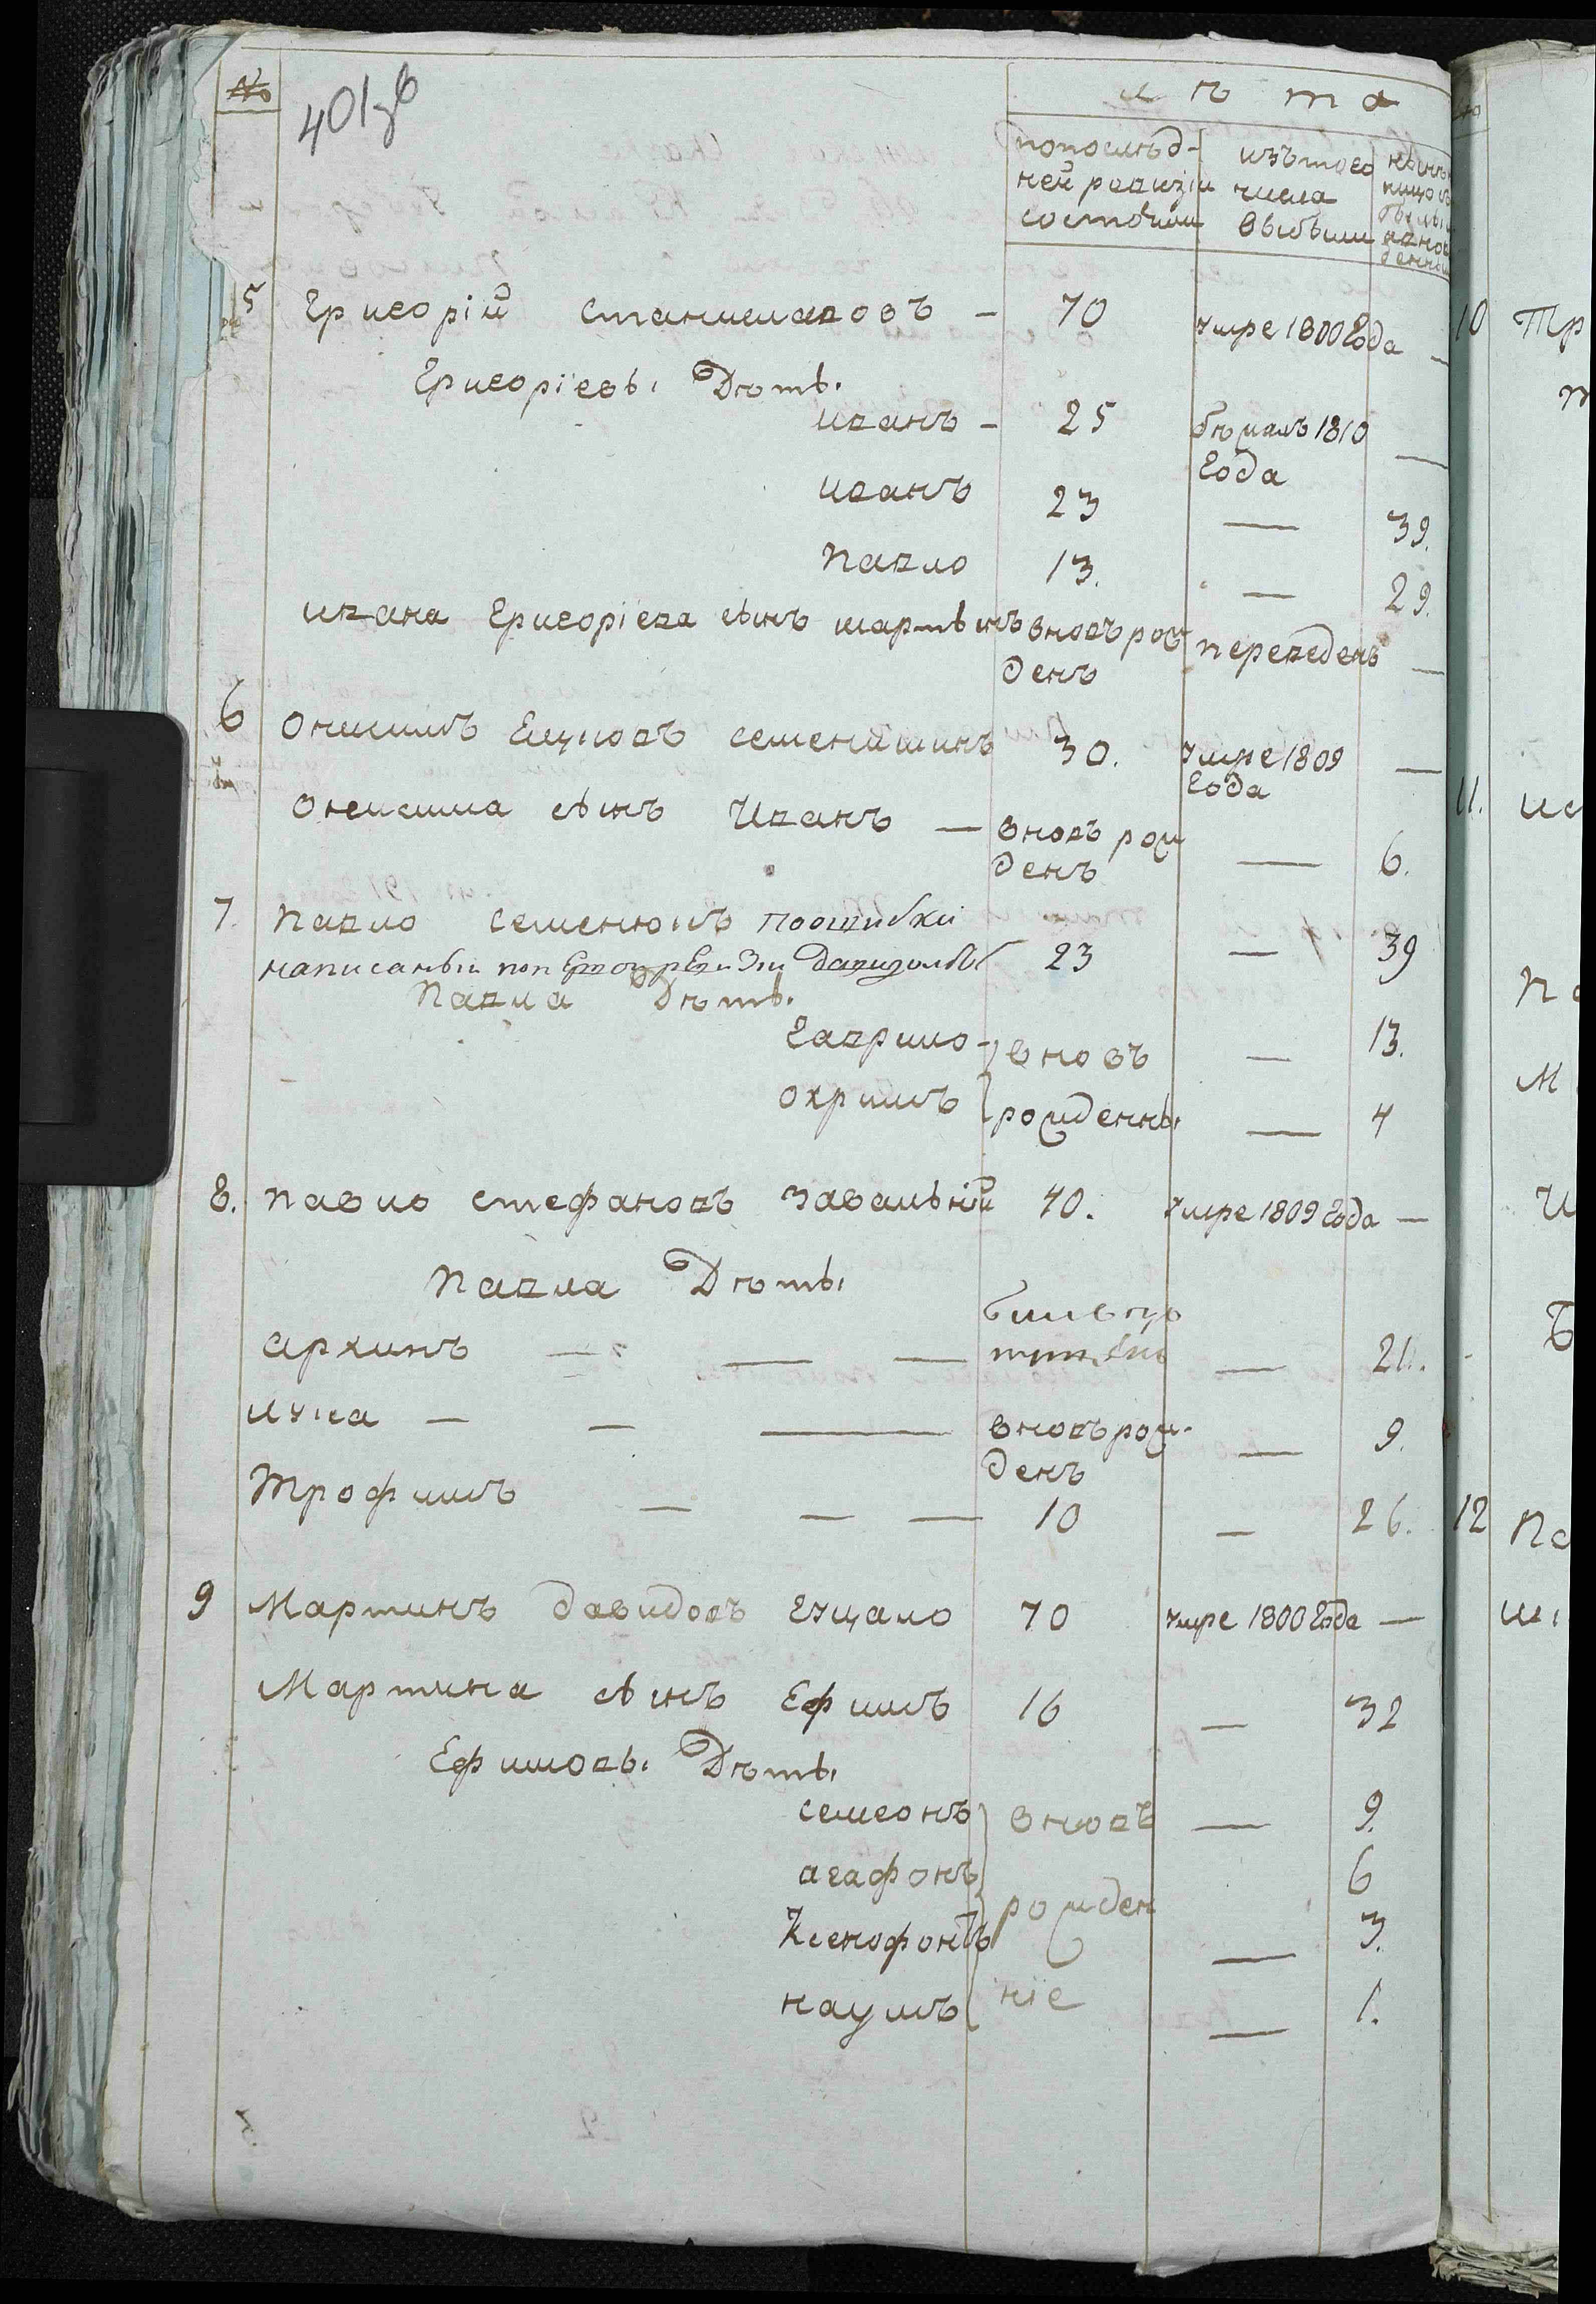 №
401 зв
лѣта
попослѣд-
ней ревизiи
состояли
изътого
числа
выбыли
нынѣ
5 Григорiй Станиславовъ - 70 умре 1800 года —
Григорiевы Дѣты
иванъ - 25 бѣжалъ 1810 года —
иванъ 23 — 39.
павло 13. — 29.
ивана Григорiева сынъ мартынъ вновъ рож денъ переведенъ —
6 онисимъ семенишинъ 30. умре 1809 года —
онисима сынъ Иванъ — вновъ рож денъ — 6.
7. павло семенюкъ поошибки
написаный 23 — 39
павла Дѣты
гаврило - вновъ — 13.
охримъ рожденны — 4
8. павло стефановъ завальнiй 40. умре 1809 года —
павла Дѣты
архипъ — — — — 21.
лука — — — вновъ рож- денъ — 9.
трофимъ — — — 10 — 26.
9 Мартинъ давидовъ гуцало 70 умре 1800 года —
Мартина сынъ Ефимъ 16 — 32
Ефимовы Дѣты
семеонъ вновъ — 9.
агафонъ рожден 6
Ксенофонтъ — 3.
наумъ нiе — 1.
10 Тр
11.
12 Па